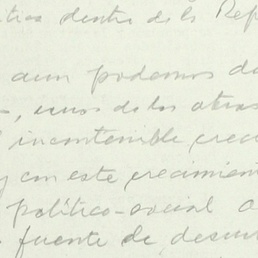 dentro de la Rep
aun podemos d
unos de los otros
incontenible crec
y con este crecimient
político-social a
fuente de descon